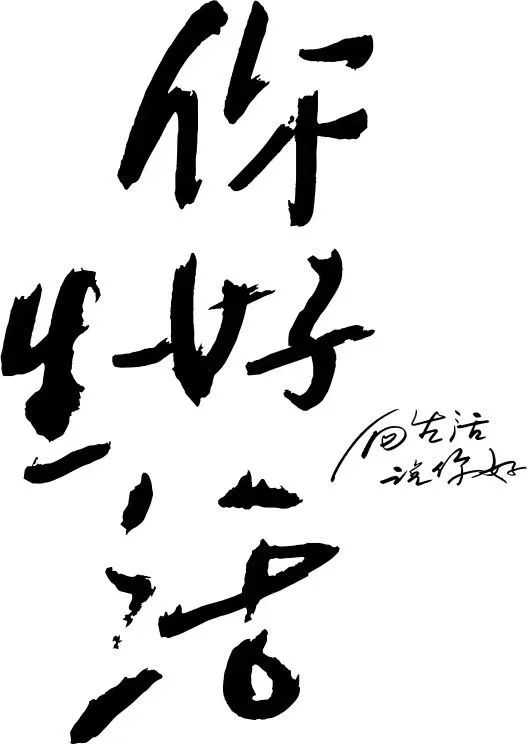 你好
生活
向生活
说你好